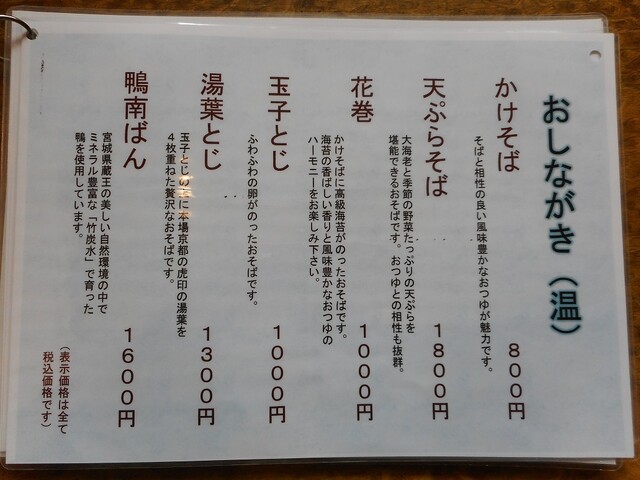 おしながき（温）
かけそば
そばと相性の良い風味豊かなおつゆが魅力です。
８００円
天ぷらそば
大海老と季節の野菜たっぷりの天ぷらを
堪能できるおそばです。おつゆとの相性も抜群。
１８００円
花巻
かけそばに高級海苔がのったおそばです。
海苔の香ばしい香りと風味豊かなおつゆの
ハーモニーをお楽しみ下さい。
１０００円
玉子とじ
ふわふわの卵がのったおそばです。
１０００円
湯葉とじ
玉子とじの上に本場京都の虎印の湯葉を
４枚重ねた贅沢なおそばです。
１３００円
鴨南ばん
宮城県蔵王の美しい自然環境の中で
ミネラル豊富な「竹炭水」で育った
鴨を使用しています。
１６００円
（表示価格は全て
税込価格です）